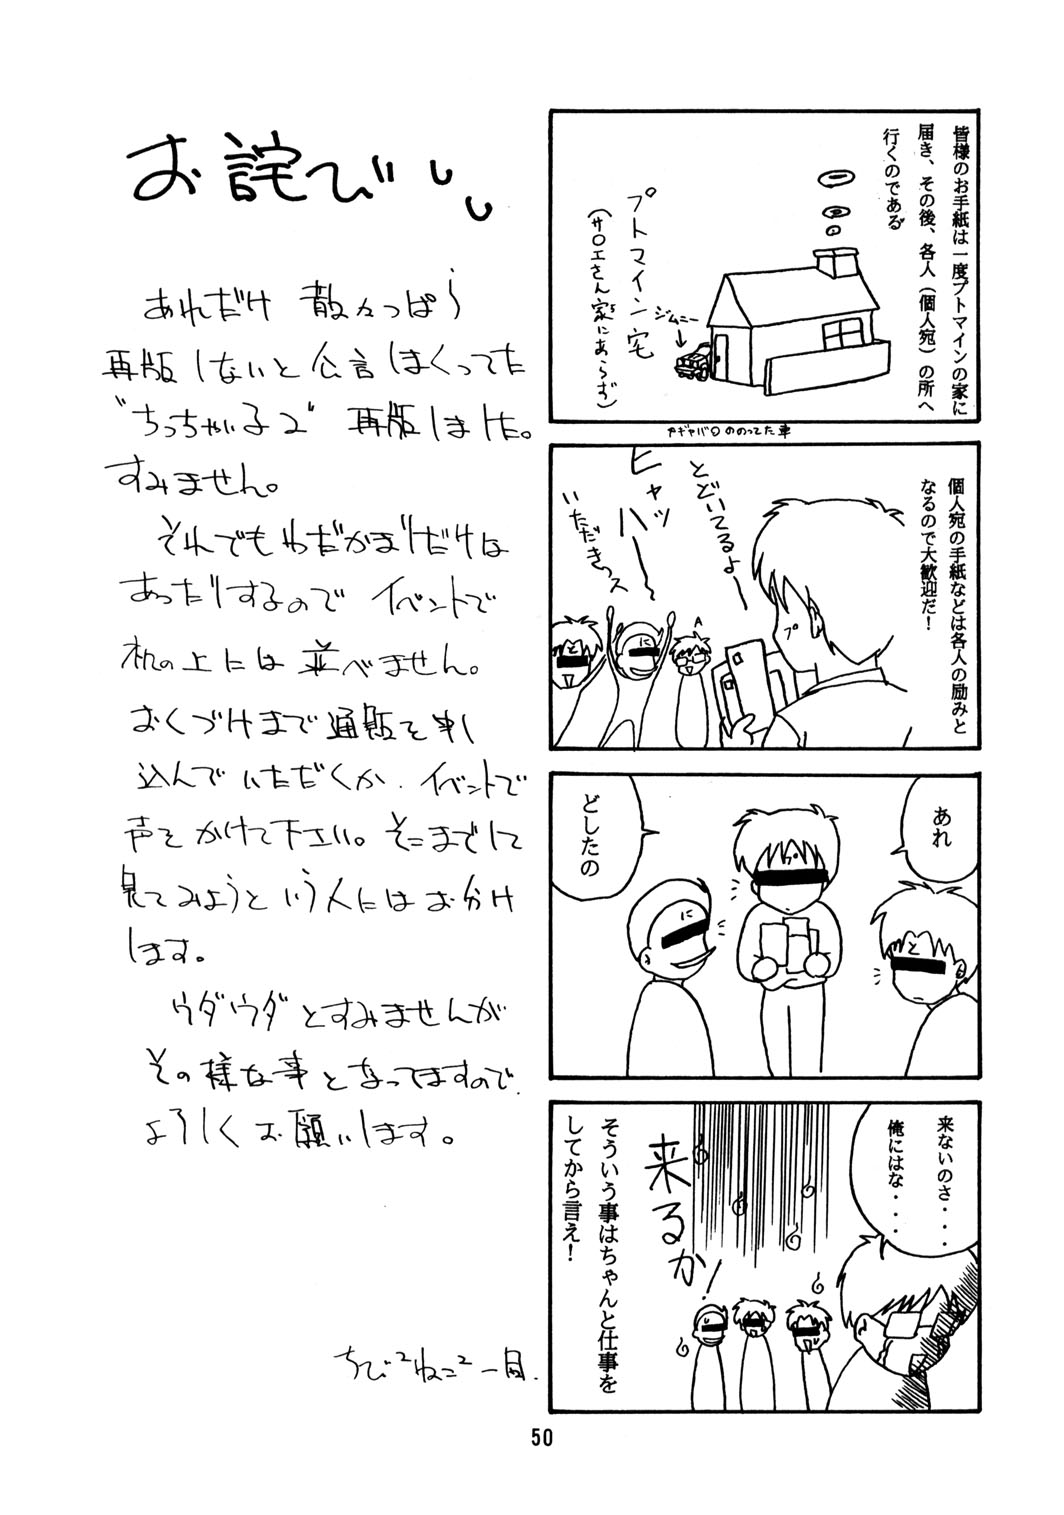 皆様のお手紙は一度プトマインの家に
届き、その後、各人（個人宛）の所へ
行くのである
プトマイン宅
（サロエさん家にあらず）
ジムニー
個人宛の手紙などは各人の励みと
なるので大歓迎だ！
とどいてるよー
ヒャッ
ハー
いただきっス
プ
A
に
と
あれ
どしたの
プ
に
と
来ないのさ・・・
俺にはな・・・
来るか！
そういう事はちゃんと仕事を
してから言え！
お詫び
あれだけ 散々っぱら
再版しないと公言しまくってた
“ちっちゃい子2” 再版しました。
すみません。
それでもわだかまりだけは
あったりするので イベントで
机の上には並べません。
おくづけまで通販を申し
込んでいただくか、イベントで
声をかけて下さい。そこまでして
見てみようという人にはお分け
します。
ウダウダとすみませんが
その様な事となってますので、
よろしくお願いします。
ちび²ねこ²一同.
50